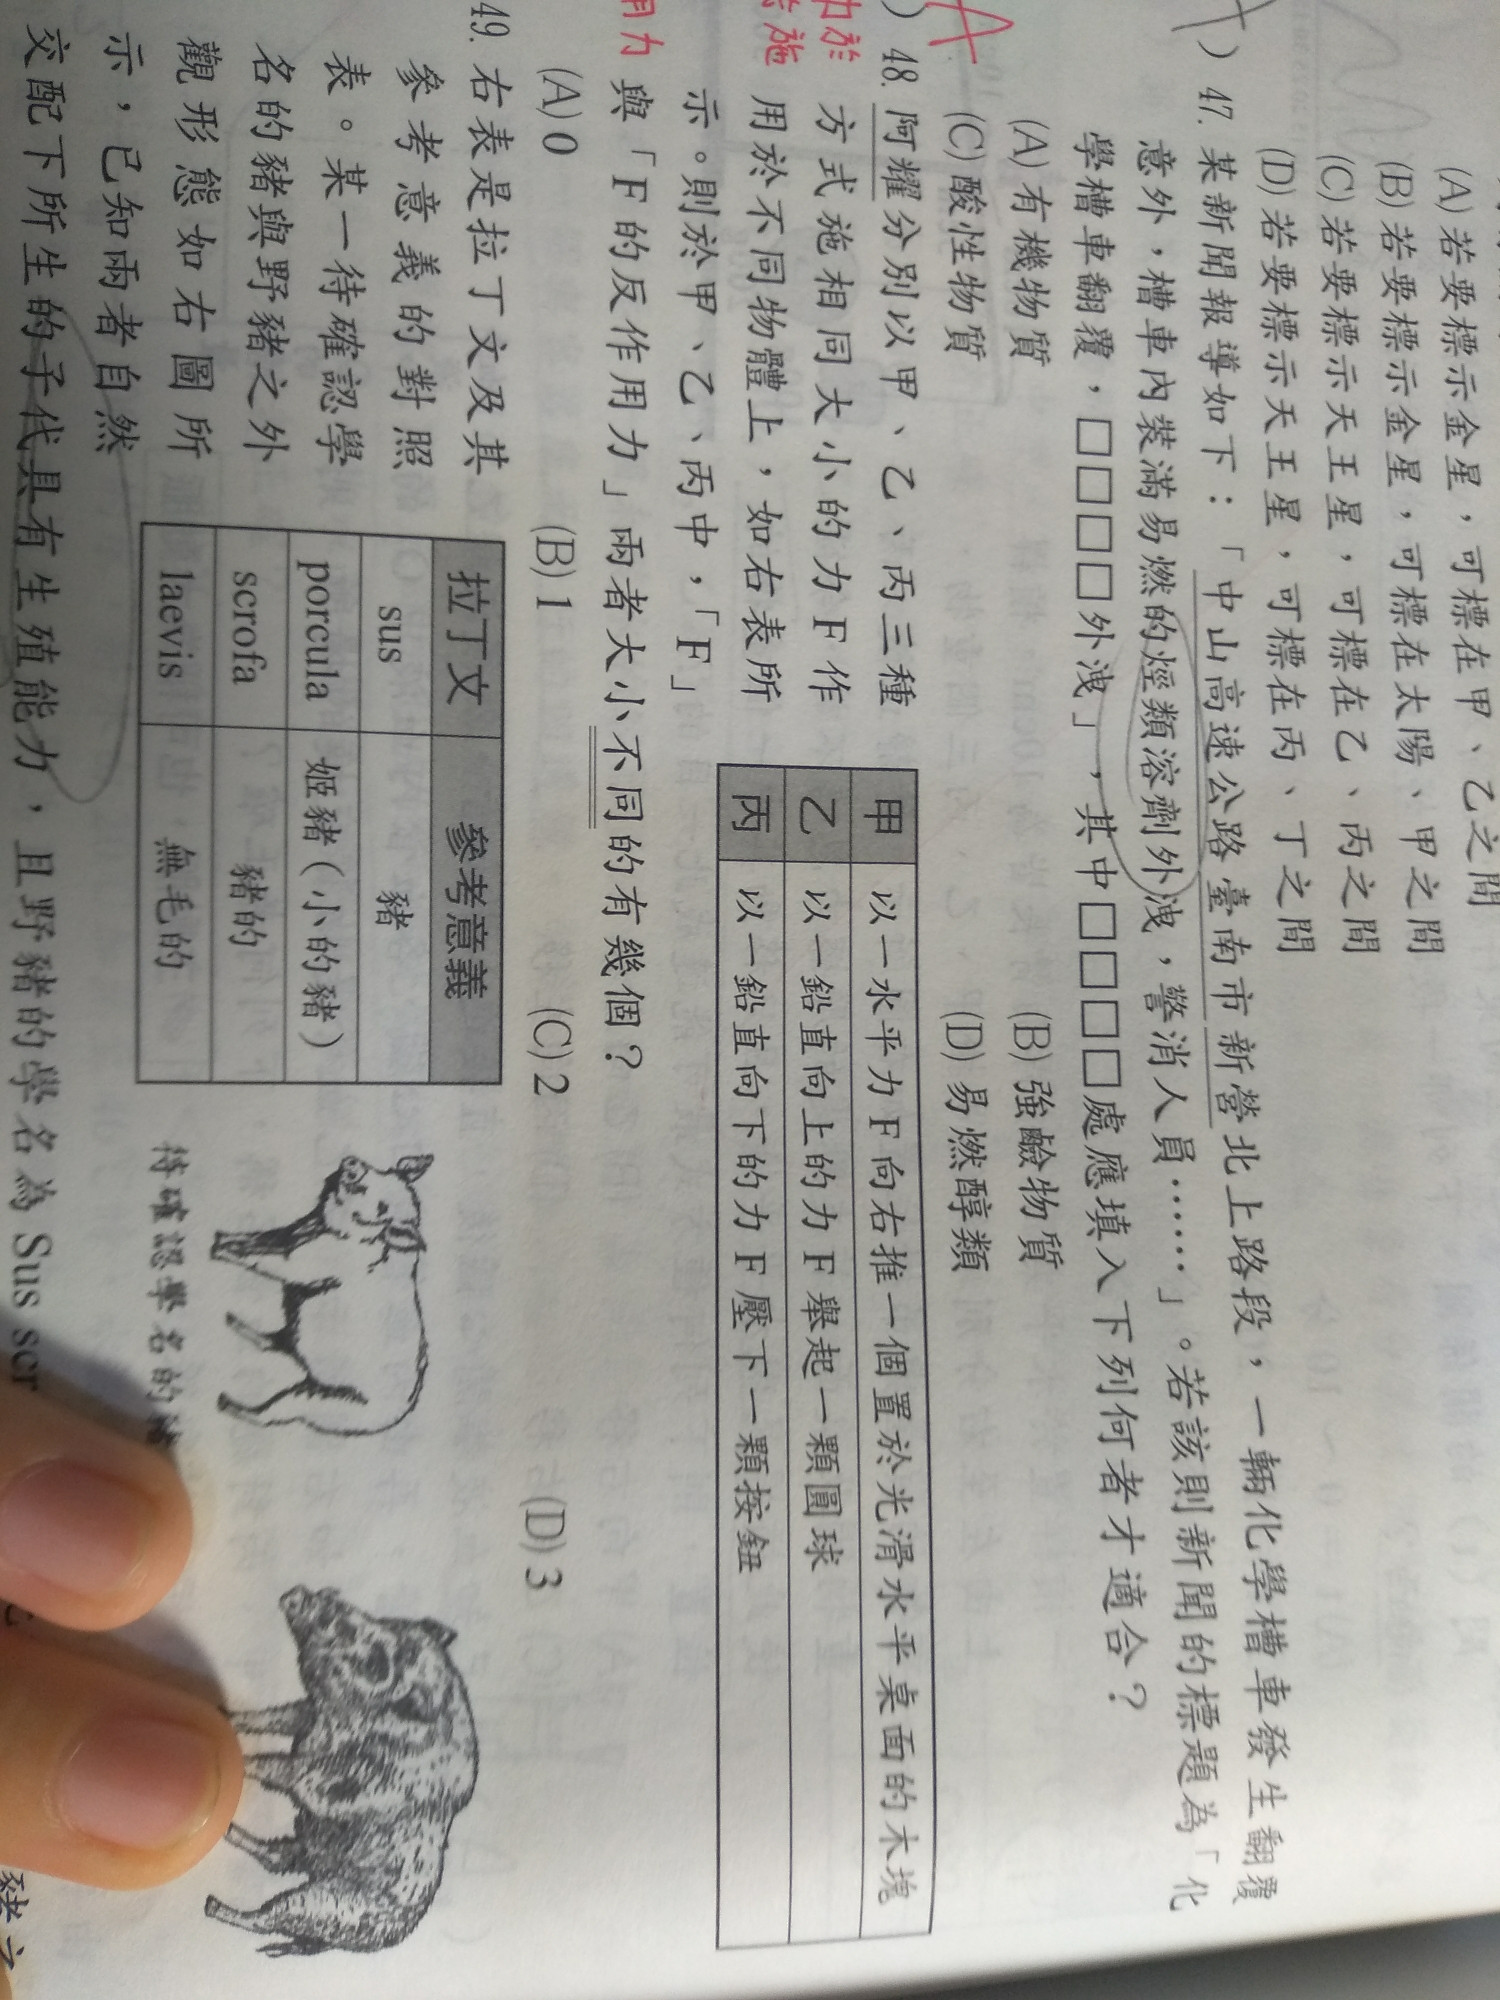 (A)若要標示金星，可標在甲、乙之間
(B)若要標示金星，可標在太陽、甲之間
(C)若要標示天王星，可標在乙、丙之間
(D)若要標示天王星，可標在丙、丁之間
)47. 某新聞報導如下：「中山高速公路臺南市新營北上路段，一輛化學槽車發生翻覆
意外，槽車內裝滿易燃的烴類溶劑外洩，警消人員……」。若該則新聞的標題為「化
學槽車翻覆，□□□□外洩」，其中□□□□處應填入下列何者才適合？
(A)有機物質 (B)強鹼物質
(C)酸性物質 (D)易燃醇類
A
)48. 阿耀分別以甲、乙、丙三種
方式施相同大小的力F作
用於不同物體上，如右表所
示。則於甲、乙、丙中，「F」
與「F的反作用力」兩者大小不同的有幾個？
甲 以一水平力F向右推一個置於光滑水平桌面的木塊
乙 以一鉛直向上的力F舉起一顆圓球
丙 以一鉛直向下的力F壓下一顆按鈕
(A)0 (B)1 (C)2 (D)3
49. 右表是拉丁文及其
參考意義的對照
表。某一待確認學
名的豬與野豬之外
觀形態如右圖所
示，已知兩者自然
交配下所生的子代具有生殖能力，且野豬的學名為Sus scr
拉丁文 參考意義
sus 豬
porcula 姬豬（小的豬）
scrofa 豬的
laevis 無毛的
待確認學名的豬